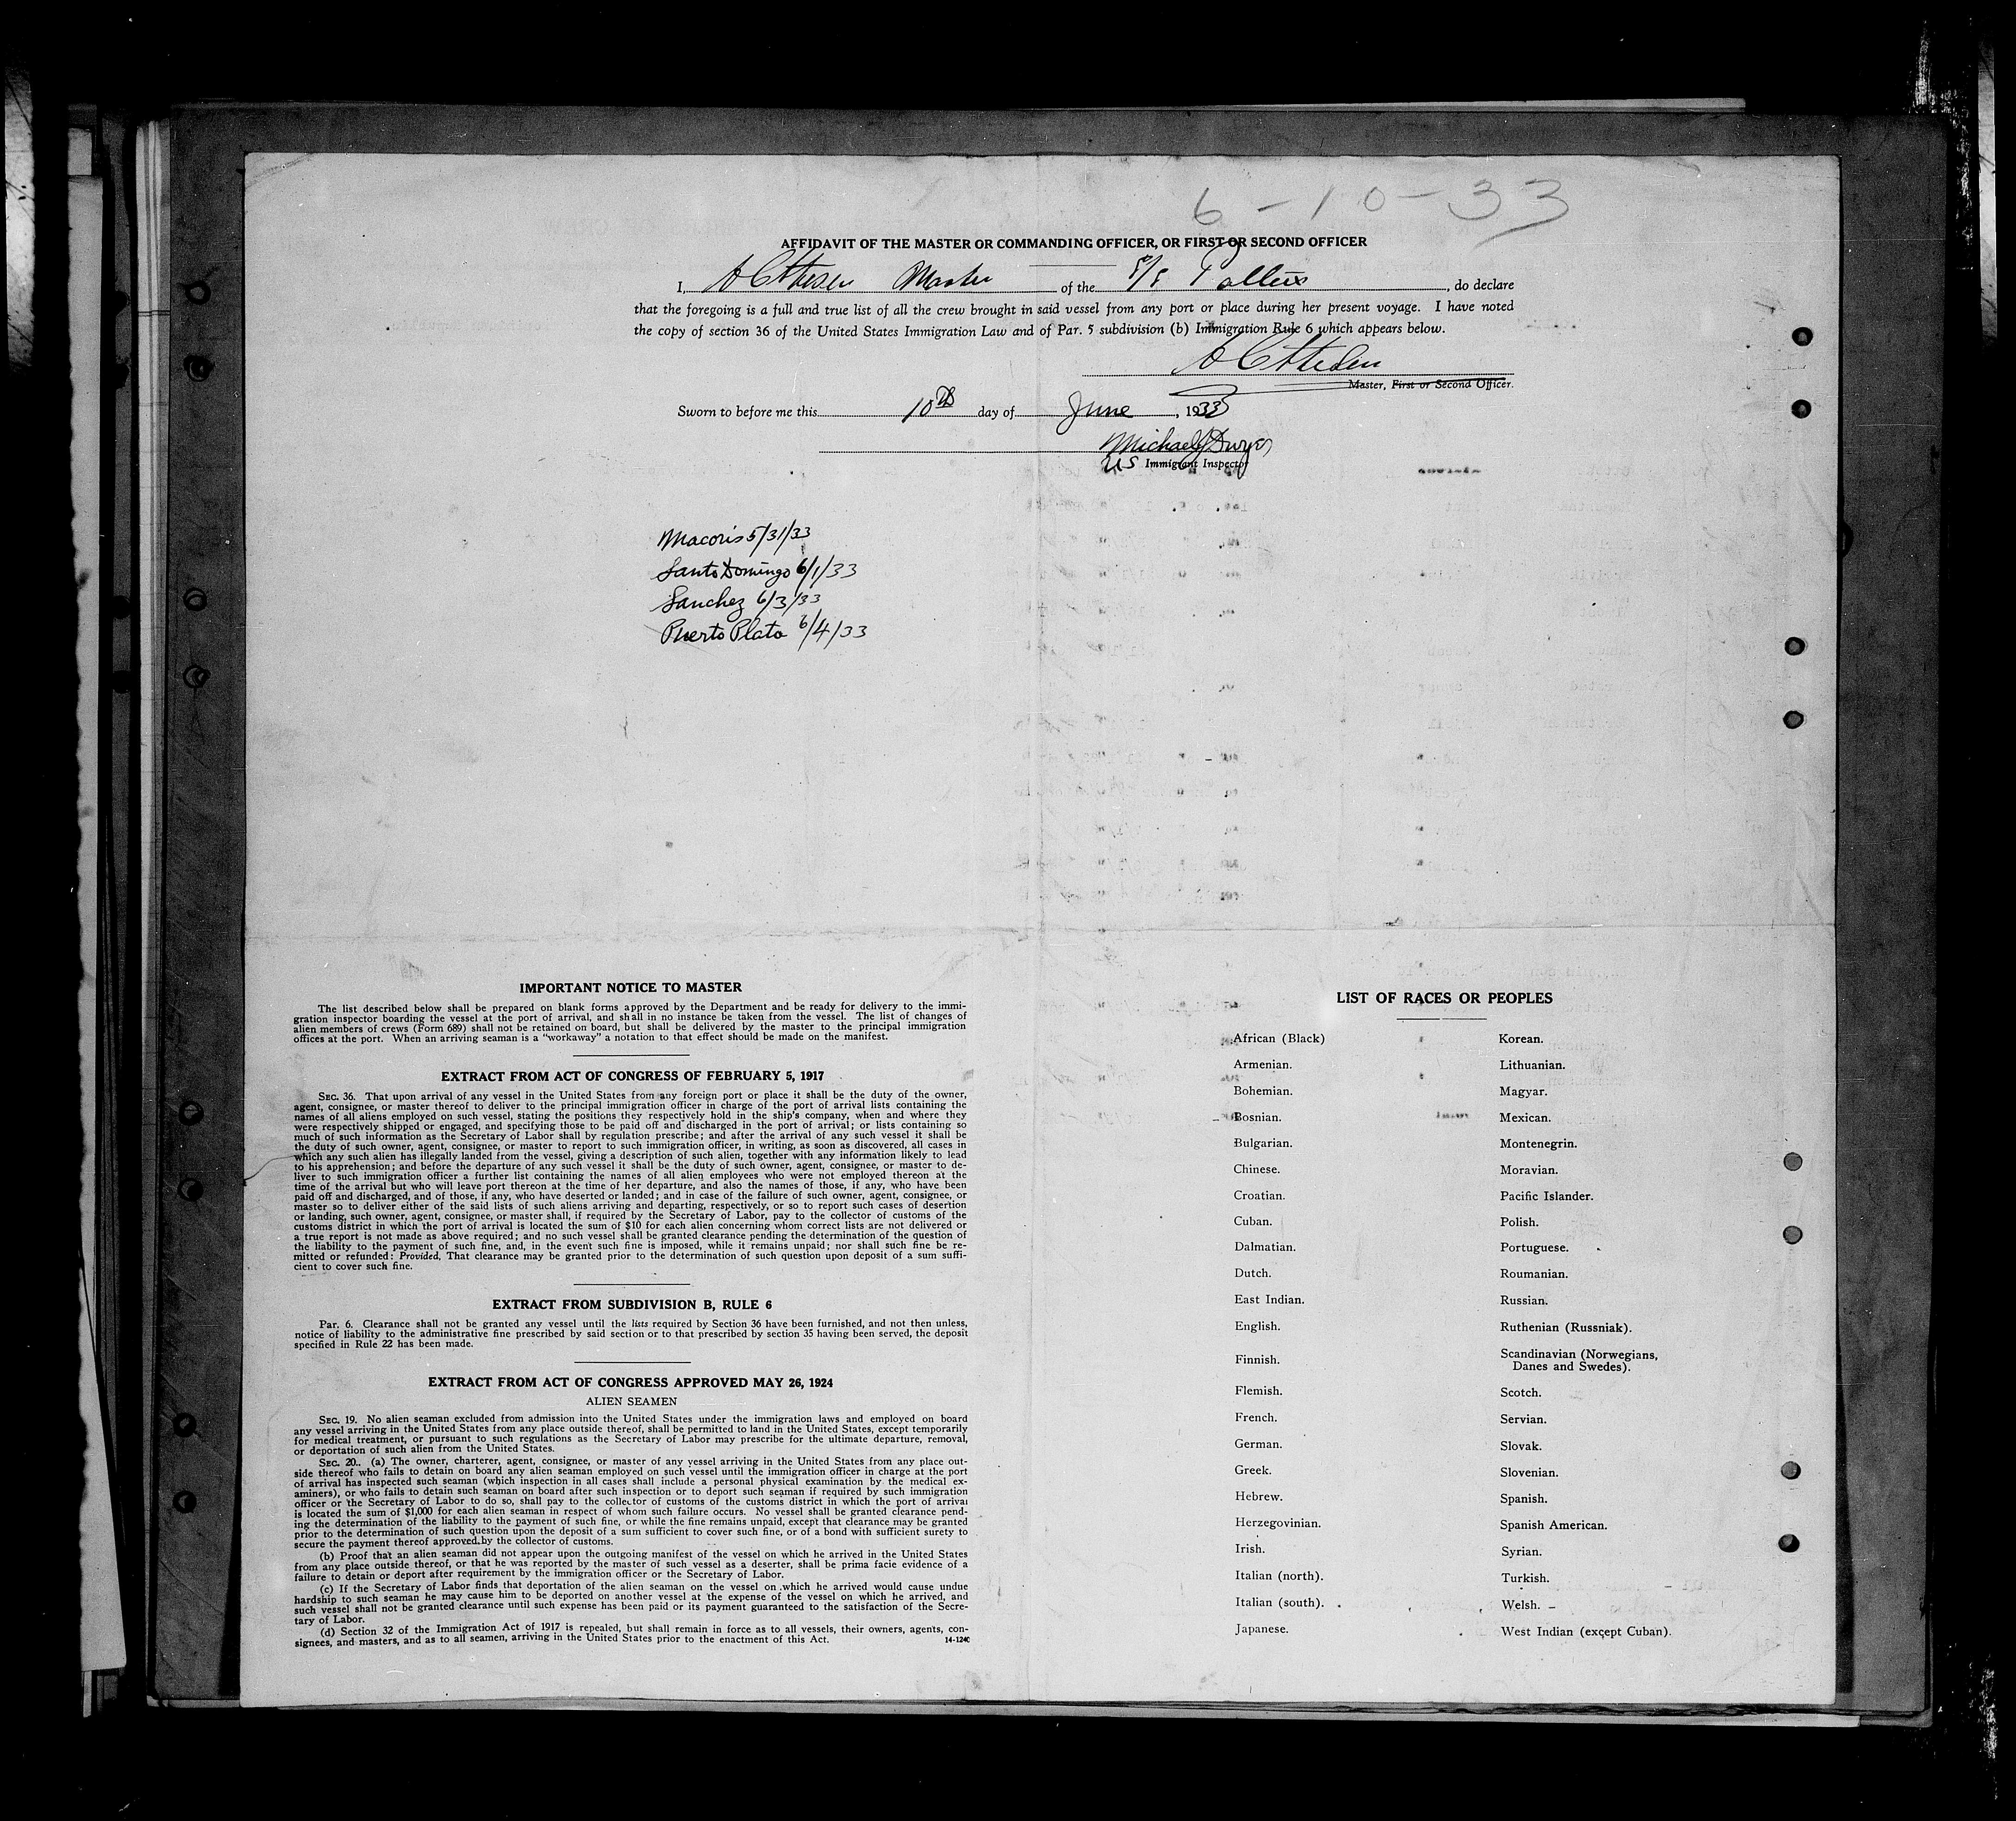 6-10-33
AFFIDAVIT OF THE MASTER OR COMMANDING OFFICER, OR FIRST OR SECOND OFFICER
I, Master of the S/S Pollux, do declare
that the foregoing is a full and true list of all the crew brought in said vessel from any port or place during her present voyage. I have noted
the copy of section 36 of the United States Immigration Law and of Par. 5 subdivision (b) Immigration Rule 6 which appears below.
Master, First or Second Officer.
Sworn to before me this 10th day of June, 1933
Michael J Dwyer
US Immigrant Inspector
Macoris 5/31/33
Santo Domingo 6/1/33
Sanchez 6/3/33
Puerto Plata 6/4/33
IMPORTANT NOTICE TO MASTER
The list described below shall be prepared on blank forms approved by the Department and be ready for delivery to the immi-
gration inspector boarding the vessel at the port of arrival, and shall in no instance be taken from the vessel. The list of changes of
alien members of crews (Form 689) shall not be retained on board, but shall be delivered by the master to the principal immigration
offices at the port. When an arriving seaman is a "workaway" a notation to that effect should be made on the manifest.
EXTRACT FROM ACT OF CONGRESS OF FEBRUARY 5, 1917
SEC. 36. That upon arrival of any vessel in the United States from any foreign port or place it shall be the duty of the owner,
agent, consignee, or master thereof to deliver to the principal immigration officer in charge of the port of arrival lists containing the
names of all aliens employed on such vessel, stating the positions they respectively hold in the ship's company, when and where they
were respectively shipped or engaged, and specifying those to be paid off and discharged in the port of arrival; or lists containing so
much of such information as the Secretary of Labor shall by regulation prescribe; and after the arrival of any such vessel it shall be
the duty of such owner, agent, consignee, or master to report to such immigration officer, in writing, as soon as discovered, all cases in
which any such alien has illegally landed from the vessel, giving a description of such alien, together with any information likely to lead
to his apprehension; and before the departure of any such vessel it shall be the duty of such owner, agent, consignee, or master to de-
liver to such immigration officer a further list containing the names of all alien employees who were not employed thereon at the
time of the arrival but who will leave port thereon at the time of her departure, and also the names of those, if any, who have been
paid off and discharged, and of those, if any, who have deserted or landed; and in case of the failure of such owner, agent, consignee, or
master so to deliver either of the said lists of such aliens arriving and departing, respectively, or so to report such cases of desertion
or landing, such owner, agent, consignee, or master shall, if required by the Secretary of Labor, pay to the collector of customs of the
customs district in which the port of arrival is located the sum of $10 for each alien concerning whom correct lists are not delivered or
a true report is not made as above required; and no such vessel shall be granted clearance pending the determination of the question of
the liability to the payment of such fine, and, in the event such fine is imposed, while it remains unpaid; nor shall such fine be re-
mitted or refunded: Provided, That clearance may be granted prior to the determination of such question upon deposit of a sum suffi-
cient to cover such fine.
EXTRACT FROM SUBDIVISION B, RULE 6
Par. 6. Clearance shall not be granted any vessel until the lists required by Section 36 have been furnished, and not then unless,
notice of liability to the administrative fine prescribed by said section or to that prescribed by section 35 having been served, the deposit
specified in Rule 22 has been made.
EXTRACT FROM ACT OF CONGRESS APPROVED MAY 26, 1924
ALIEN SEAMEN
SEC. 19. No alien seaman excluded from admission into the United States under the immigration laws and employed on board
any vessel arriving in the United States from any place outside thereof, shall be permitted to land in the United States, except temporarily
for medical treatment, or pursuant to such regulations as the Secretary of Labor may prescribe for the ultimate departure, removal,
or deportation of such alien from the United States.
SEC. 20. (a) The owner, charterer, agent, consignee, or master of any vessel arriving in the United States from any place out-
side thereof who fails to detain on board any alien seaman employed on such vessel until the immigration officer in charge at the port
of arrival has inspected such seaman (which inspection in all cases shall include a personal physical examination by the medical ex-
aminers), or who fails to detain such seaman on board after such inspection or to deport such seaman if required by such immigration
officer or the Secretary of Labor to do so, shall pay to the collector of customs of the customs district in which the port of arrival
is located the sum of $1,000 for each alien seaman in respect of whom such failure occurs. No vessel shall be granted clearance pend-
ing the determination of the liability to the payment of such fine, or while the fine remains unpaid, except that clearance may be granted
prior to the determination of such question upon the deposit of a sum sufficient to cover such fine, or of a bond with sufficient surety to
secure the payment thereof approved by the collector of customs.
(b) Proof that an alien seaman did not appear upon the outgoing manifest of the vessel on which he arrived in the United States
from any place outside thereof, or that he was reported by the master of such vessel as a deserter, shall be prima facie evidence of a
failure to detain or deport after requirement by the immigration officer or the Secretary of Labor.
(c) If the Secretary of Labor finds that deportation of the alien seaman on the vessel on which he arrived would cause undue
hardship to such seaman he may cause him to be deported on another vessel at the expense of the vessel on which he arrived, and
such vessel shall not be granted clearance until such expense has been paid or its payment guaranteed to the satisfaction of the Secre-
tary of Labor.
(d) Section 32 of the Immigration Act of 1917 is repealed, but shall remain in force as to all vessels, their owners, agents, con-
signees, and masters, and as to all seamen, arriving in the United States prior to the enactment of this Act. 14-1240
LIST OF RACES OR PEOPLES
African (Black)
Armenian.
Bohemian.
Bosnian.
Bulgarian.
Chinese.
Croatian.
Cuban.
Dalmatian.
Dutch.
East Indian.
English.
Finnish.
Flemish.
French.
German.
Greek.
Hebrew.
Herzegovinian.
Irish.
Italian (north).
Italian (south).
Japanese.
Korean.
Lithuanian.
Magyar.
Mexican.
Montenegrin.
Moravian.
Pacific Islander.
Polish.
Portuguese.
Roumanian.
Russian.
Ruthenian (Russniak).
Scandinavian (Norwegians,
Danes and Swedes).
Scotch.
Servian.
Slovak.
Slovenian.
Spanish.
Spanish American.
Syrian.
Turkish.
Welsh.
West Indian (except Cuban).